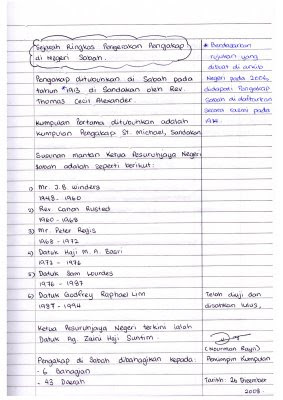 Sejarah Ringkas Pergerakan Pengakap
di Negeri Sabah.
Pengakap ditubuhkan di Sabah pada
tahun *1913 di Sandakan oleh Rev.
Thomas Cecil Alexander.
Kumpulan Pertama ditubuhkan adalah
Kumpulan Pengakap St. Michael, Sandakan
Susunan mantan Ketua Pesuruhjaya Negeri
Sabah adalah seperti berikut:
1) Mr. J.B. Winders
1948 - 1960
2) Rev. Canon Rusted
1960 - 1968
3) Mr. Peter Regis
1968 - 1972
4) Datuk Haji M. A. Basri
1972 - 1976
5) Datuk Sam Lourdes
1976 - 1987
6) Datuk Godfrey Raphael Lim
1987 - 1994
Ketua Pesuruhjaya Negeri terkini ialah
Datuk Ag. Zaini Haji Suntim.
Pengakap di Sabah dibahagikan kepada:
- 6 Bahagian
- 43 Daerah
* Berdasarkan
rujukan yang
dibuat di arkib
Negeri pada 2006,
didapati Pengakap
Sabah di daftarkan
secara rasmi pada
Telah diuji dan
disahkan lulus,
Pemimpin Kumpulan
Tarikh: 20 Disember
2008.